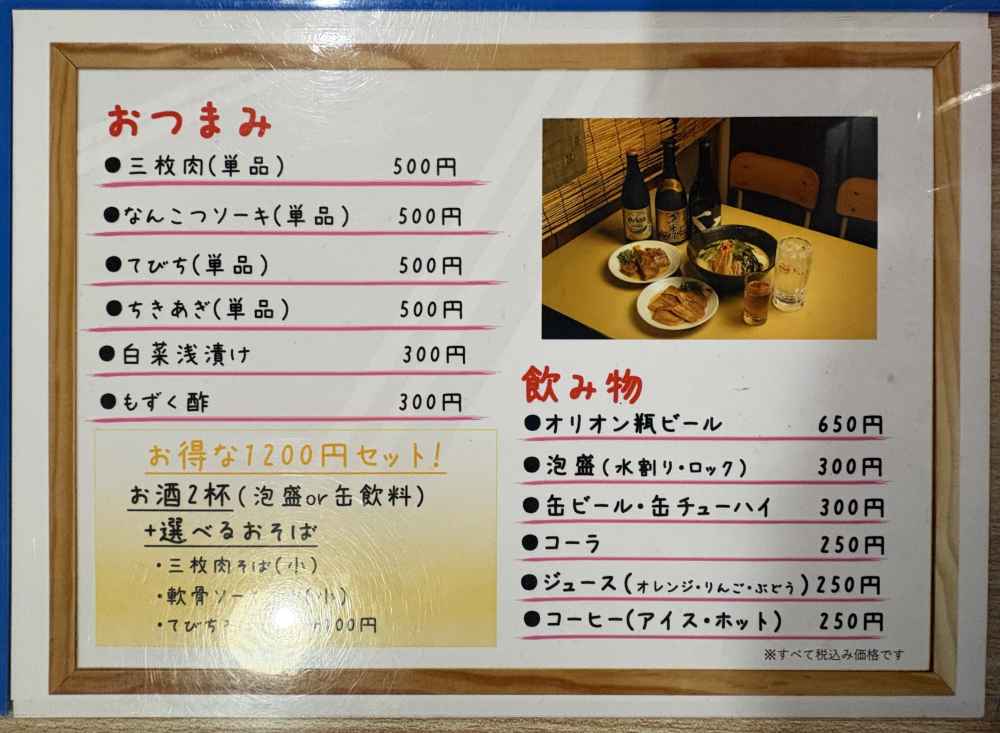 おつまみ
●三枚肉(単品) 500円
●なんこつソーキ(単品) 500円
●てびち(単品) 500円
●ちきあぎ(単品) 500円
●白菜浅漬け 300円
●もずく酢 300円
お得な1200円セット!
お酒2杯(泡盛or缶飲料)
+選べるおそば
・三枚肉そば(小)
・軟骨ソ 小)
・てびち 100円
飲み物
●オリオン瓶ビール 650円
●泡盛(水割り・ロック) 300円
●缶ビール・缶チューハイ 300円
●コーラ 250円
●ジュース(オレンジ・りんご・ぶどう) 250円
●コーヒー(アイス・ホット) 250円
※すべて税込み価格です